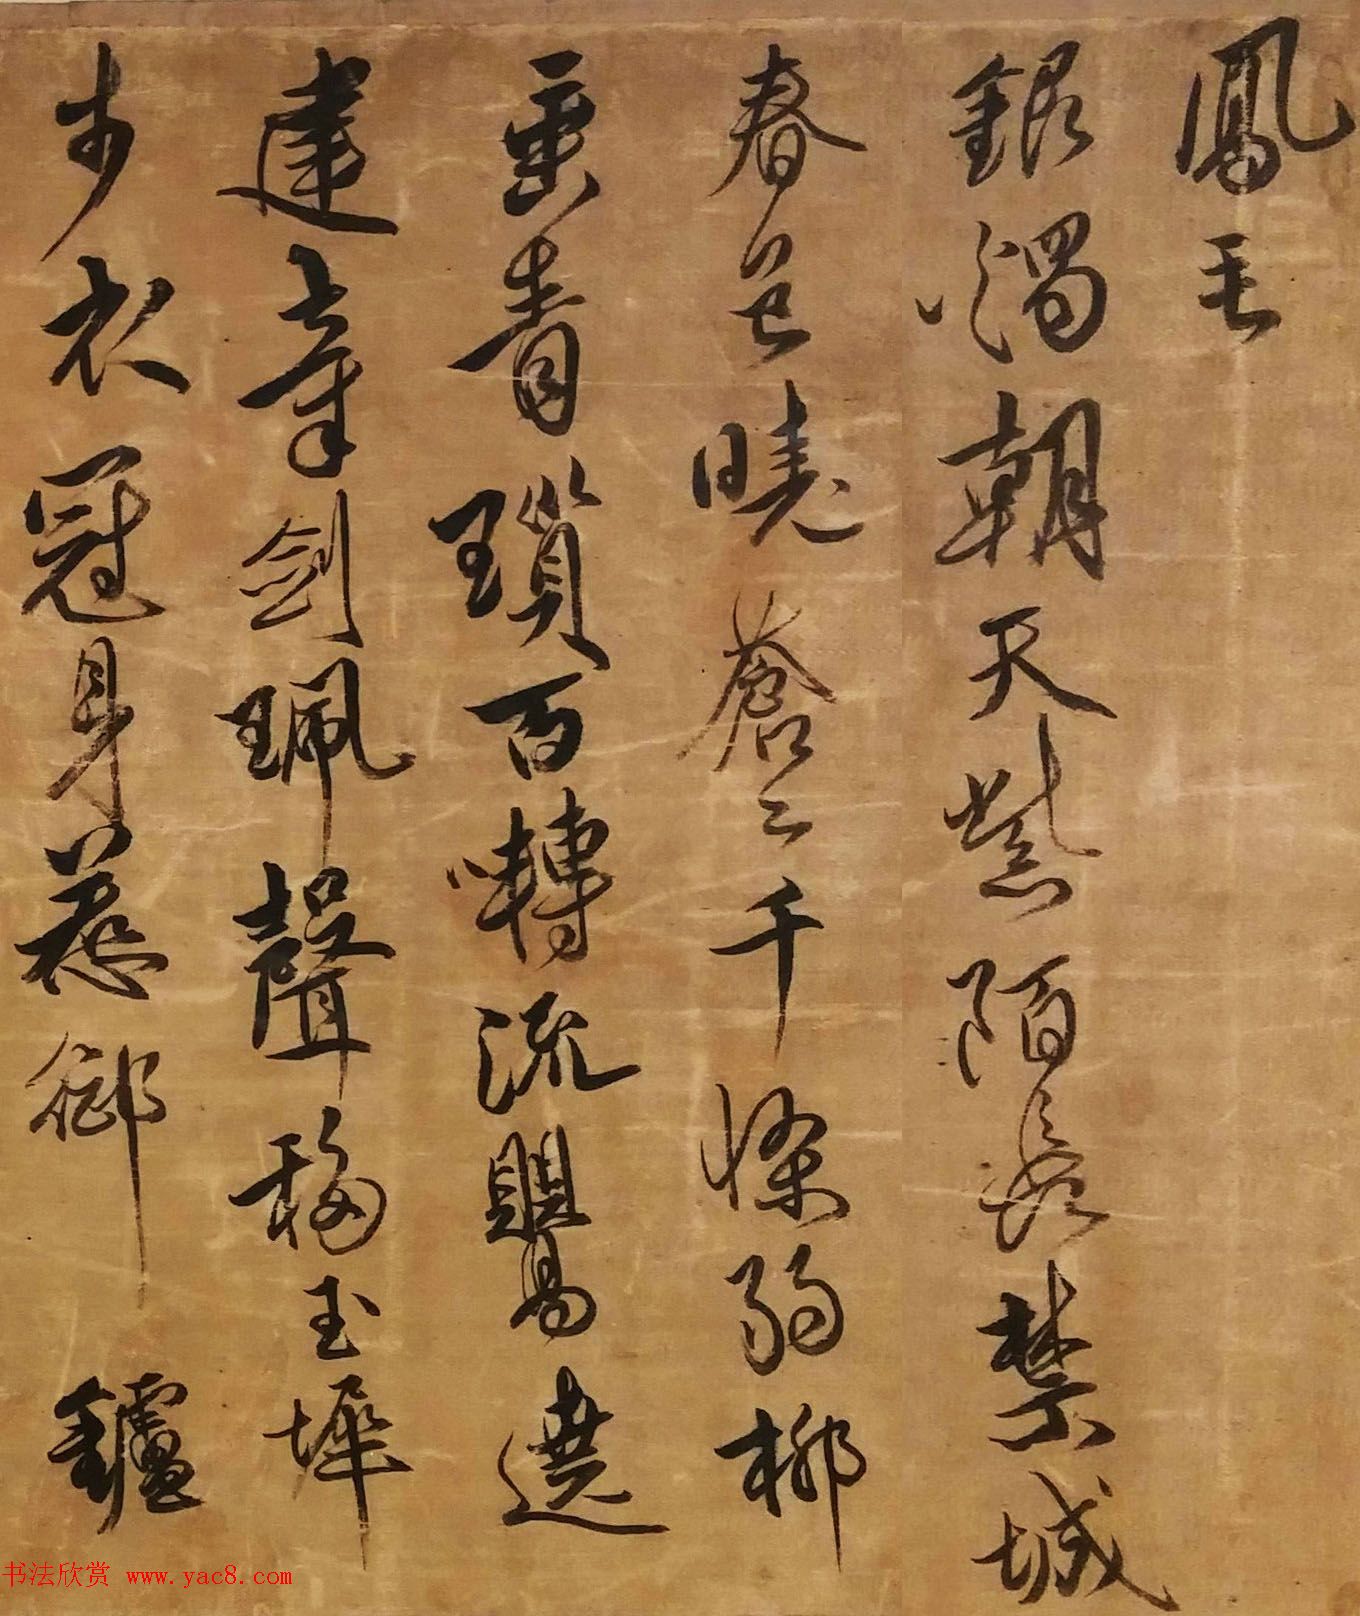 鳳毛
銀燭朝天紫陌長禁城
春色曉蒼〻千條弱柳
垂青瑣百囀流鶯遶
建章劍珮聲移玉墀
步衣冠身惹御鑪
书法欣赏 www.yac8.com